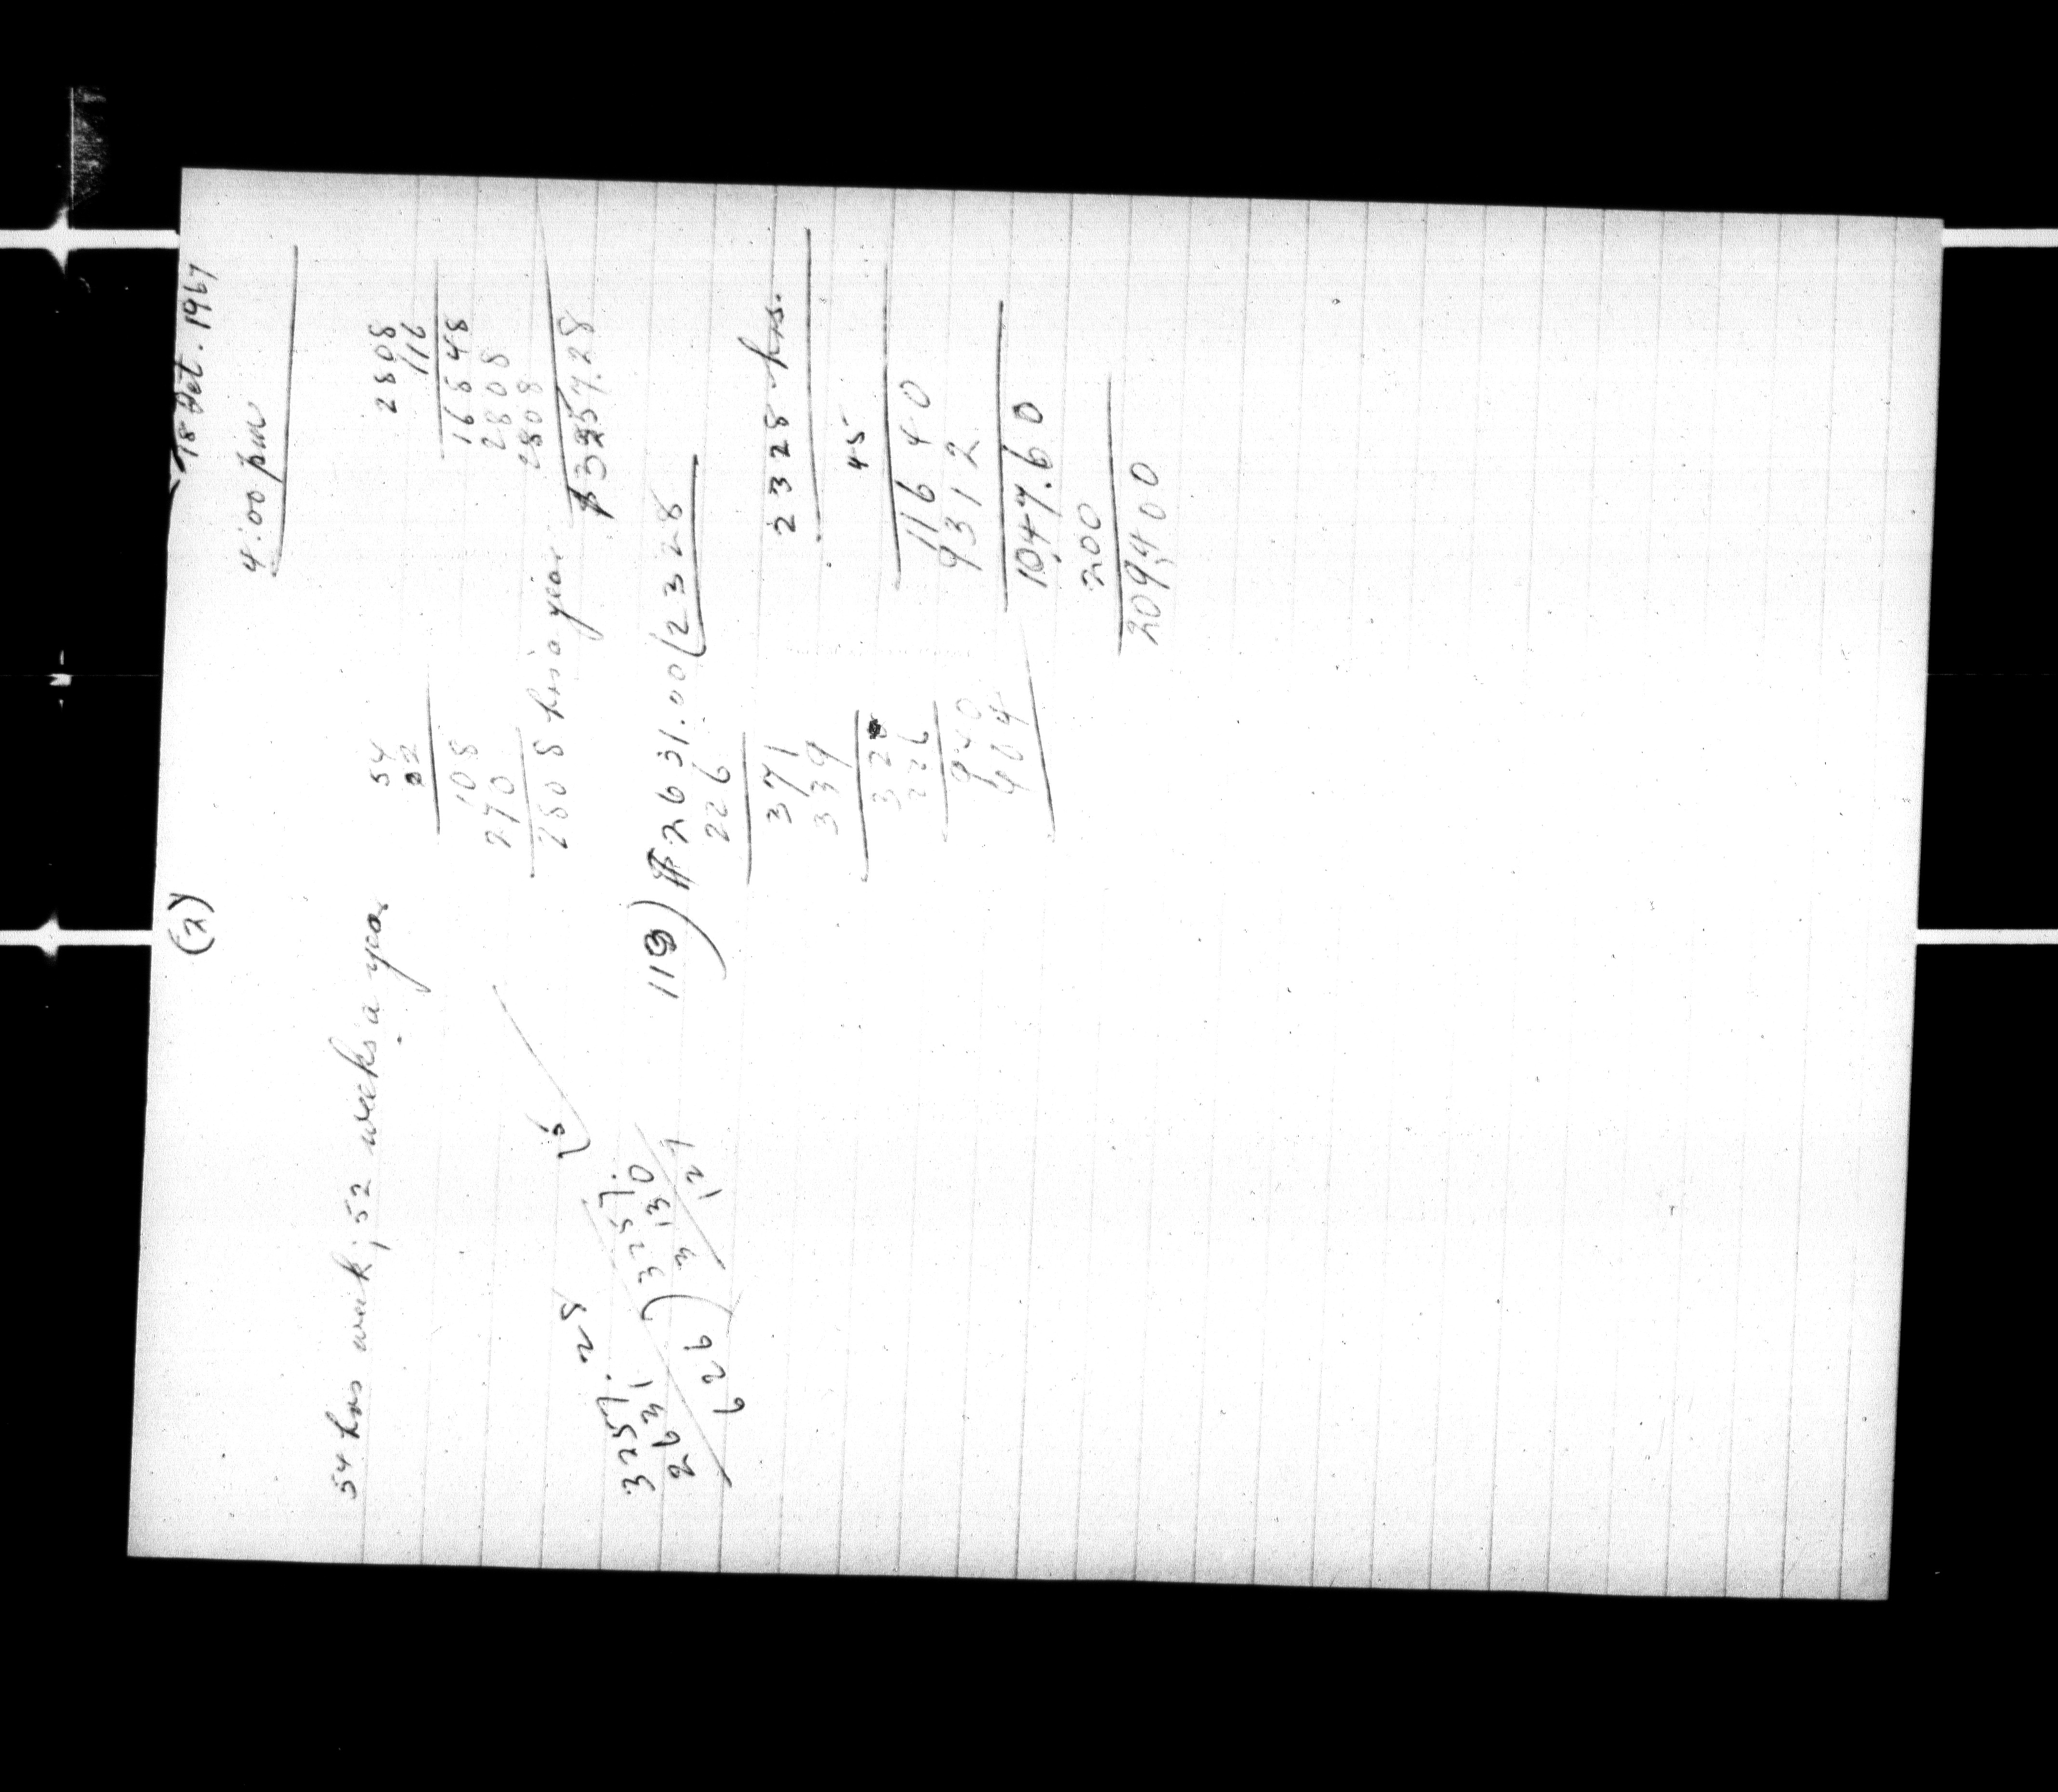 (2)
18 Oct. 1967
4:00 pm
54 hrs week; 52 weeks a year
54
52
108
270
2808 hrs a year
2808
116
16848
2808
2808
$3257.28
3257.28
2631
626
) 3257. (5
3130
127
113) $2631.00 (2328
226
371
339
328
226
940
404
2328 hrs.
45
11640
9312
1047.60
200
209,400